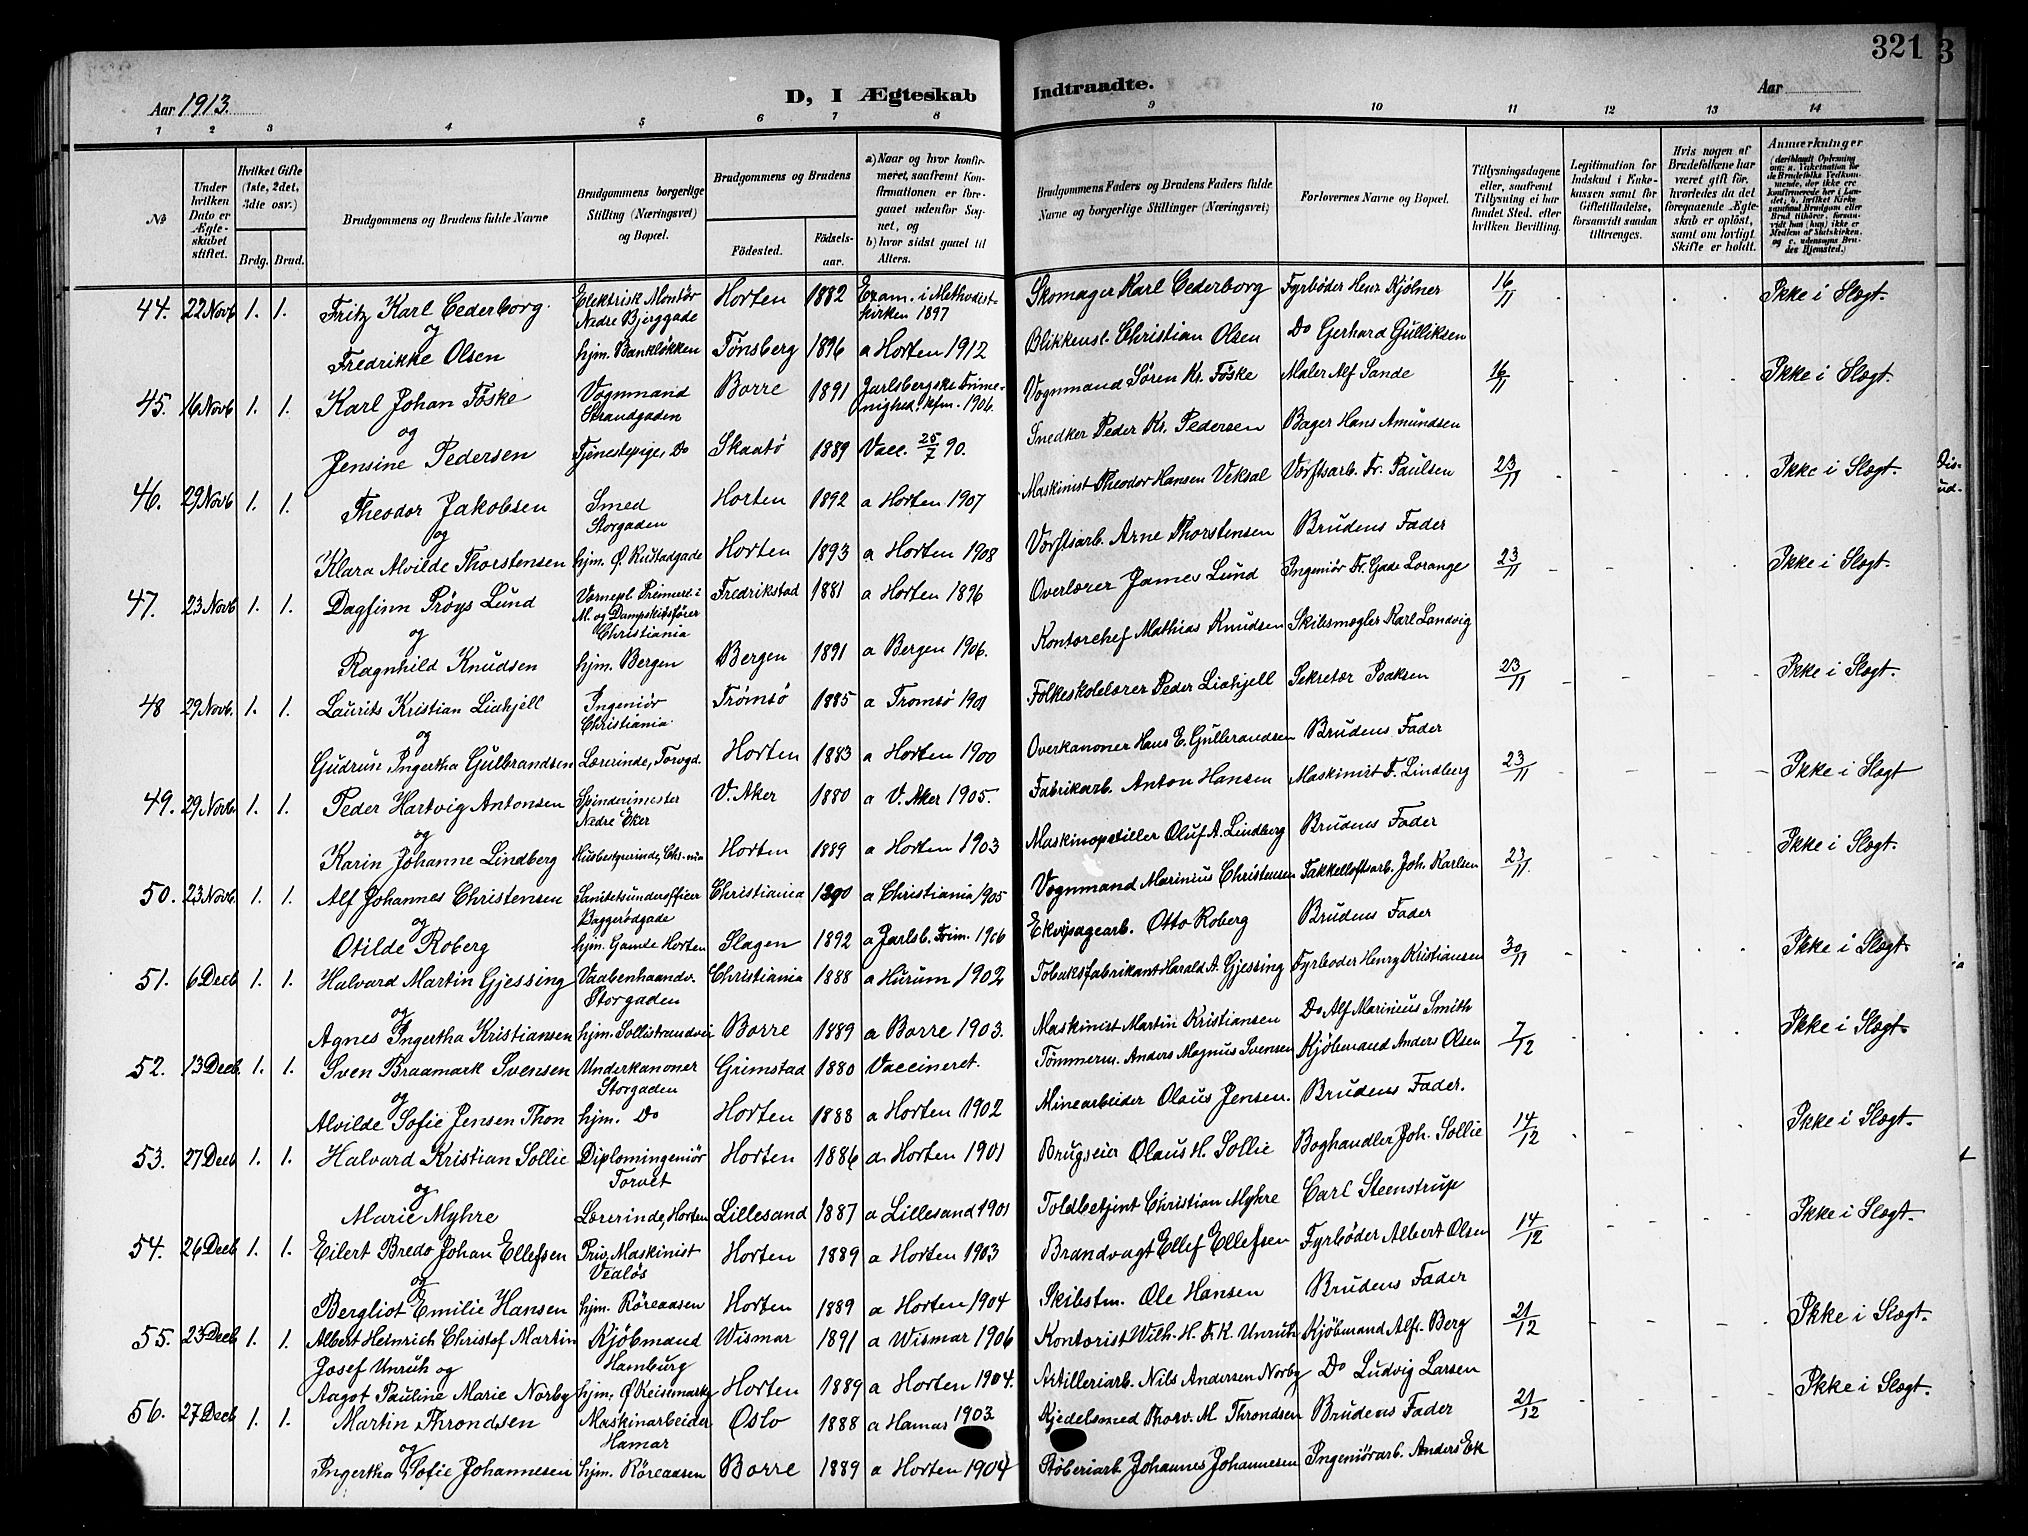 321
Aar 1913.
D, I Ægteskab Indtraadte.
Aar
1 2 3 4 5 6 7 8 9 10 11 12 13 14
No
Under hvilken Dato er Ægteskabet stiftet.
Hvilket Gifte (1ste, 2det, 3dte osv.)
Brdg. Brud.
Brudgommens og Brudens fulde Navne
Brudgommens borgerlige Stilling (Næringsvei) og Bopæl.
Brudgommens og Brudens
Fødested.
Fødselsaar.
a) Naar og hvor konfirmeret, saafremt Konfirmationen er foregaaet udenfor Sognet, og
b) hvor sidst gaaet til Alters.
Brudgommens Faders og Brudens Faders fulde Navne og borgerlige Stillinger (Næringsvei)
Forlovernes Navne og Bopæl.
Tillysningsdagene eller, saafremt Tillysning ei har fundet Sted, efter hvilken Bevilling.
Legitimation for Indskud i Enkekassen samt for Giftetilladelse, forsaavidt saadan tiltrænges.
Hvis nogen af Brudefolkene har været gift før, hvorledes da det foregaaende Ægteskab er opløst, samt om lovligt Skifte er holdt.
Anmærkninger
44. 22 Novb 1. 1. Fritz Karl Cederborg Elektrisk Montør Nedre Bjerggade Horten 1882 Exam. i Methodistkirken 1897 Skomager Karl Cederborg Fyrbøder Henr. Kjølner 16/11 Ikke i Slægt.
og
Fredrikke Olsen hjm. Bankløkken Tønsberg 1896 a Horten 1912 Blikkensl. Christian Olsen Do Gerhard Gulliksen
45. 16 Novb 1. 1. Karl Johan Føske Vognmand Strandgaden Borre 1891 Jarlsbergske Frimenighed kfm. 1906. Vognmand Søren Kr. Føske Maler Alf Sande 16/11 Ikke i Slægt.
og
Jensine Pedersen Tjenestepige, Do Skaatø 1889 Vacc. 25/7 90. Snedker Peder Kr. Pedersen Bager Hans Amundsen
46. 29 Novb 1. 1. Theodor Jakobsen Smed Storgaden Horten 1892 a Horten 1907 Maskinist Theodor Hansen Veksal Verftsarb. Fr. Paulsen 23/11 Ikke i Slægt.
og
Klara Alvilde Thorstensen hjm. Ø. Rustadgade Horten 1893 a Horten 1908 Verftsarb. Arne Thorstensen Brudens Fader
47. 23 Novb 1. 1. Dagfinn Prøys Lund Vernepl. Premierl. i M. og Dampskibsfører Christiania Fredrikstad 1881 a Horten 1896 Overlærer James Lund Ingeniør Fr. Gade Lorange 23/11 Ikke i Slægt.
og
Ragnhild Knudsen hjm. Bergen Bergen 1891 a Bergen 1906. Kontorchef Mathias Knudsen Skibsmægler Karl Landvig
48 29 Novb. 1. 1. Laurits Kristian Liahjell Ingeniør Christiania Tromsø 1885 a Tromsø 1901 Folkeskolelærer Peder Liahjell Sekretær Isaksen 23/11 Ikke i Slægt.
og
Gudrun Ingertha Gulbrandsen Lærerinde, Torvgd. Horten 1883 a Horten 1900 Overkanoner Hans E. Gulbrandsen Brudens Fader
49. 29 Novb. 1. 1. Peder Hartvig Antonsen Spinderimester Nedre Eker V. Aker 1880 a V. Aker 1905. Fabrikarb. Anton Hansen Maskinist F. Lindberg 23/11 Ikke i Slægt
og
Karin Johanne Lindberg Husbestyrerinde, Chr-nia Horten 1889 a Horten 1903 Maskinopstiller Oluf A. Lindberg Brudens Fader
50. 23 Novb. 1. 1. Alf Johannes Christensen Sanitetsunderofficer Baggerødgade Christiania 1890 a Christiania 1905 Vognmand Marinius Christensen Takkelloftsarb. Joh. Karlsen 23/11. Ikke i Slægt.
og
Otilde Roberg hjm. Gamle Horten Slagen 1892 a Jarlsb. Frim. 1906 Ekvipagearb. Otto Roberg Brudens Fader
51. 6 Decb 1. 1. Halvard Martin Gjessing Vaabenhaandv. Storgaden Christiania 1888 a Hurum 1902 Tobaksfabrikant Harald A. Gjessing Fyrbøder Henry Kristiansen 30/11 Ikke i Slægt.
og
Agnes Ingertha Kristiansen hjm. Sollistrandvei Borre 1889 a Borre 1903. Maskinist Martin Kristiansen Do Alf Marinius Smith
52. 13 Decb. 1. 1. Sven Braamark Svensen Underkanoner Storgaden Grimstad 1880 Vaccineret. Tømmerm. Anders Magnus Svensen Kjøbmand Anders Olsen 7/12 Ikke i Slægt.
og
Alvilde Sofie Jensen Thon hjm. Do Horten 1888 a Horten 1902 Minearbeider Olaus Jensen. Brudens Fader.
53. 27 Decb 1. 1. Halvard Kristian Sollie Diplomingeniør Torvet Horten 1886 a Horten 1901 Brugseier Olaus H. Sollie Boghandler Joh. Sollie 14/12 Ikke i Slægt.
og
Marie Myhre Lærerinde, Horten Lillesand 1887 a Lillesand 1901 Toldbetjent Christian Myhre Carl Steenstrup
54. 26 Decb 1. 1. Eilert Bredo Johan Ellefsen Priv. Maskinist Vealøs Horten 1889 a Horten 1903 Brandvagt Ellef Ellefsen Fyrbøder Albert Olsen 14/12 Ikke i Slægt.
og
Bergliot Emilie Hansen hjm. Røreaasen Horten 1889 a Horten 1904 Skibstm. Ole Hansen Brudens Fader
55. 23 Decb 1. 1. Albert Heinrich Christof Martin Josef Unruh og Kjøbmand Hamburg Wismar 1891 a Wismar 1906 Kontorist Wilh. H. F. K. Unruh Kjøbmand Alfr. Berg 21/12 Ikke i Slægt.
Aagot Pauline Marie Norby hjm. Ø Keisemark Horten 1889 a Horten 1904. Artilleriarb. Nils Andersen Norby Do Ludvig Larsen
56. 27 Decb 1. 1. Martin Throndsen Maskinarbeider Hamar Oslo 1888 a Hamar 1903 Kjedelsmed Thorv. M. Throndsen Brudens Fader 21/12 Ikke i Slægt.
og
Ingertha Sofie Johannesen hjm. Røreaasen Borre 1889 a Horten 1904 Støberiarb. Johannes Johannesen Ingeniørarb. Anders Ek